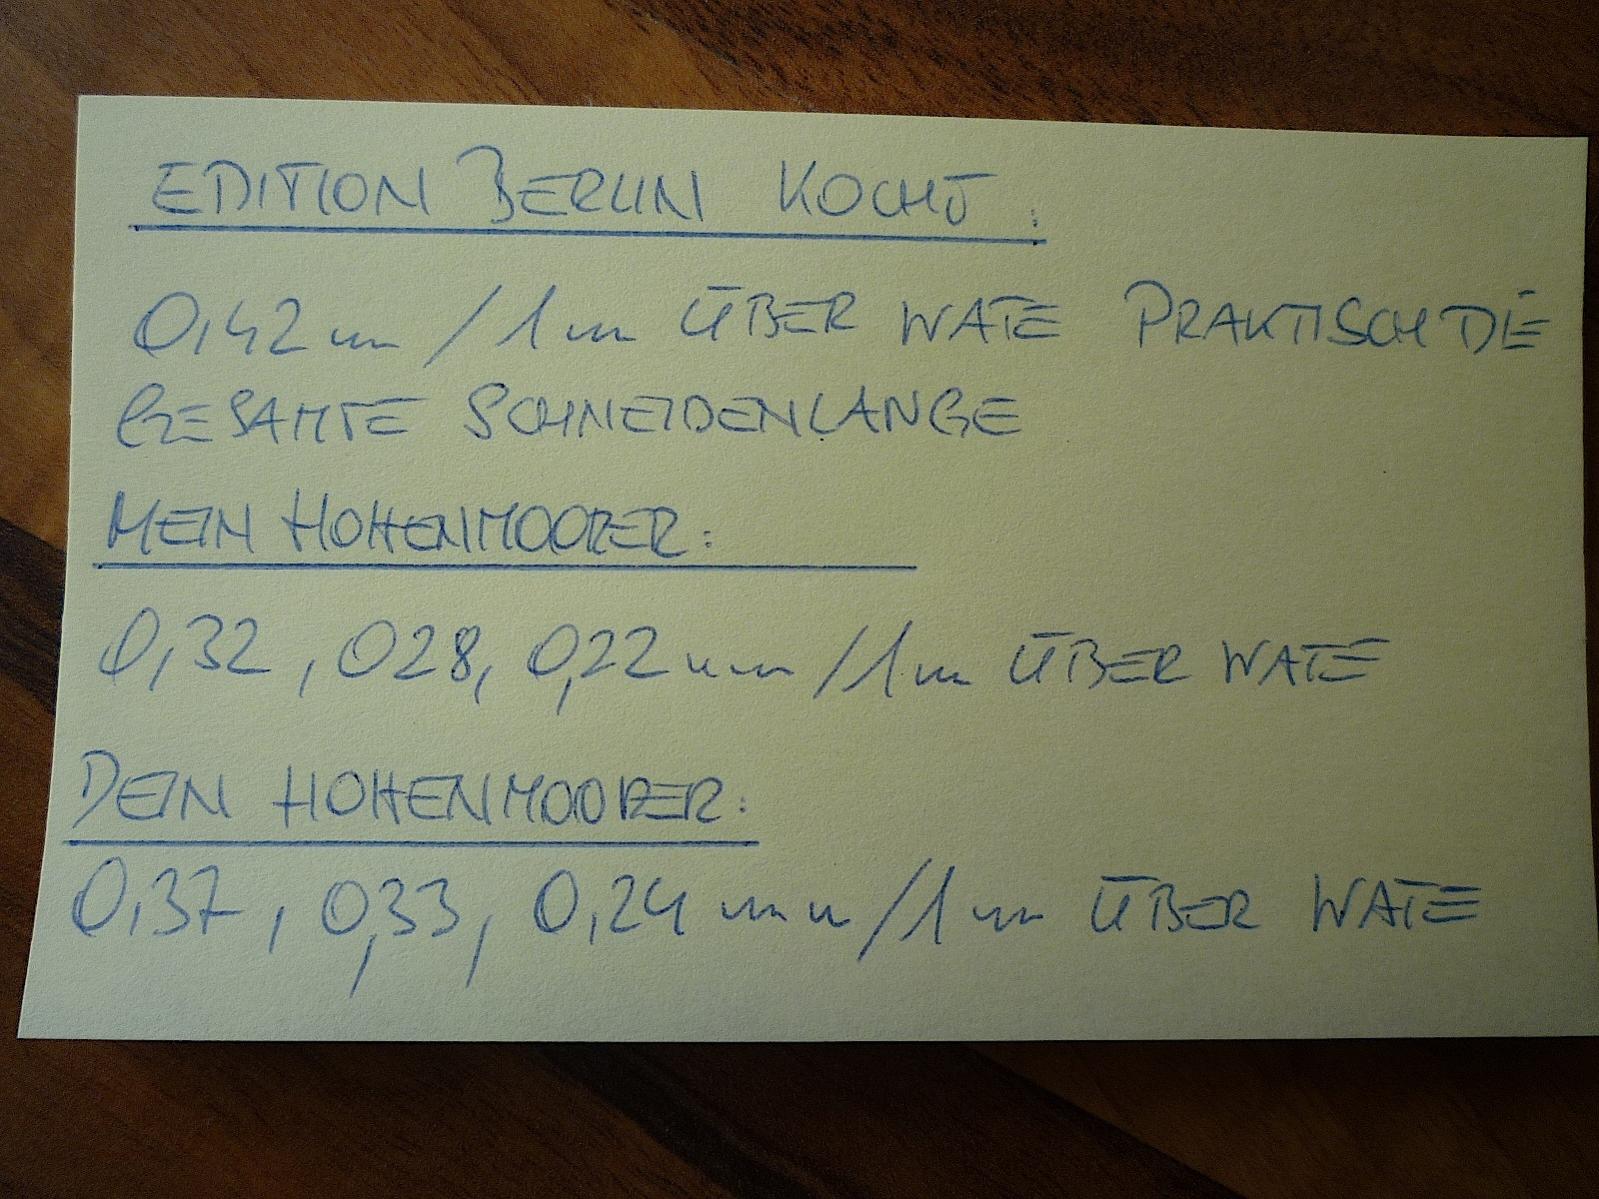 EDITION BERLIN KOCHT:
0,42 mm / 1 mm ÜBER WATE PRAKTISCH DIE
GESAMTE SCHNEIDENLÄNGE
MEIN HOHENMOORER:
0,32, 028, 0,22 mm / 1 mm ÜBER WATE
DEIN HOHENMOORER:
0,37, 0,33, 0,24 mm / 1 mm ÜBER WATE